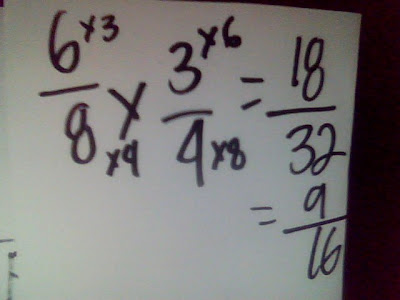 6 ×3 / 8 ×4 × 3 ×6 / 4 ×8 = 18 / 32
= 9 / 16